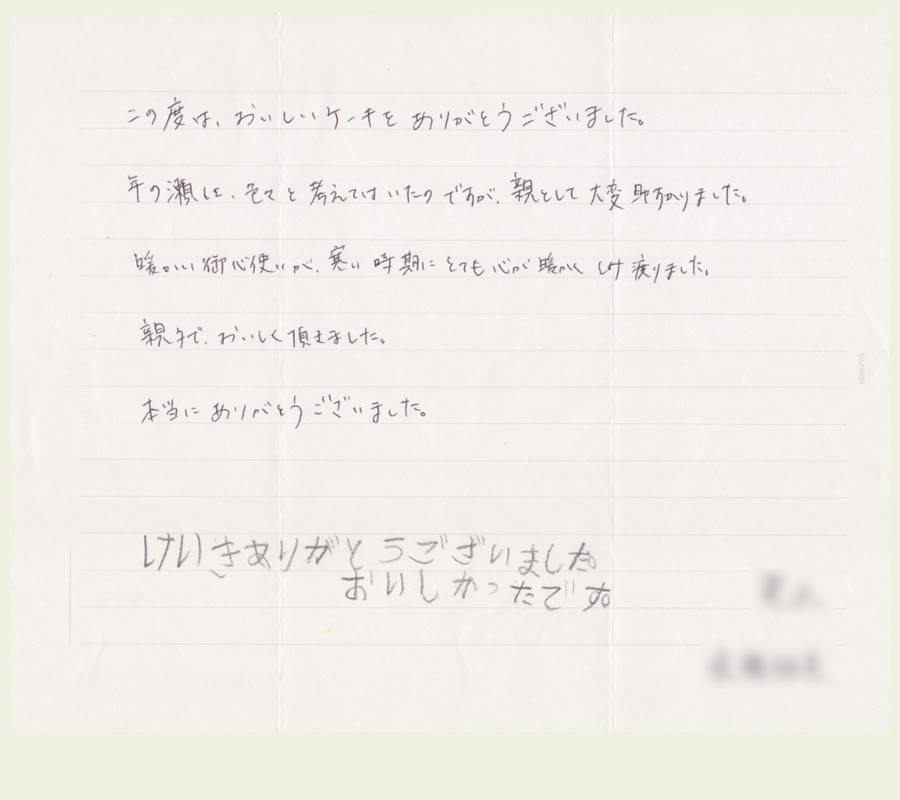 この度は、おいしいケーキを ありがとうございました。
年の瀬も、色々と考えてはいたのですが、親として大変助かりました。
暖かい御心使いが、寒い時期にとても心が暖かく
親子で、おいしく頂きました。
本当にありがとうございました。
けいきありがとうございました。
おいしかったです。